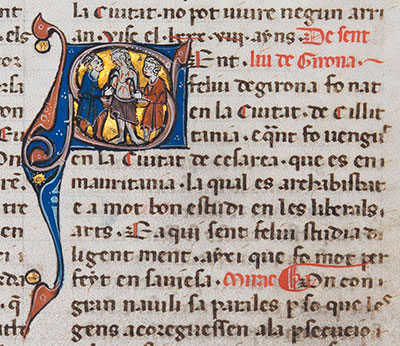 la Ciutat no pot uiure negun arri
an. Visc el .lxxx. viii. ayns De sent
Ent. liu de Girona.
feliu de girona fo nat
en la Ciutat. de Cillit
tania. eqnt fo uengut
en la Ciutat de cesarea. que es en
mauritania. la qual es archabisbat
e a mot bon estudi en les liberals
arts. E aqui sent feliu studia di
ligent ment. ayxi que fo mot per
feyt en sauiesa. Mirac On con i
gran nauili sa paralas p so que les
gens acoreguessen ala psecucio